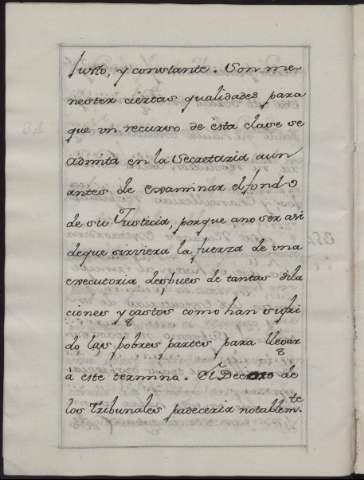 justo, y constante. Son me-
nester ciertas qualidades para
que vn recurso de esta clase se
admita en la Secretaría aun
antes de examinar el fondo
de su Justicia, porque a no ser asi
de que sirviera la fuerza de vna
executoria despues de tantas dila
ciones y gastos como han sufri
do las pobres partes para llegar
à este termino. El Decoro de
los Tribunales padeceria notablem.te